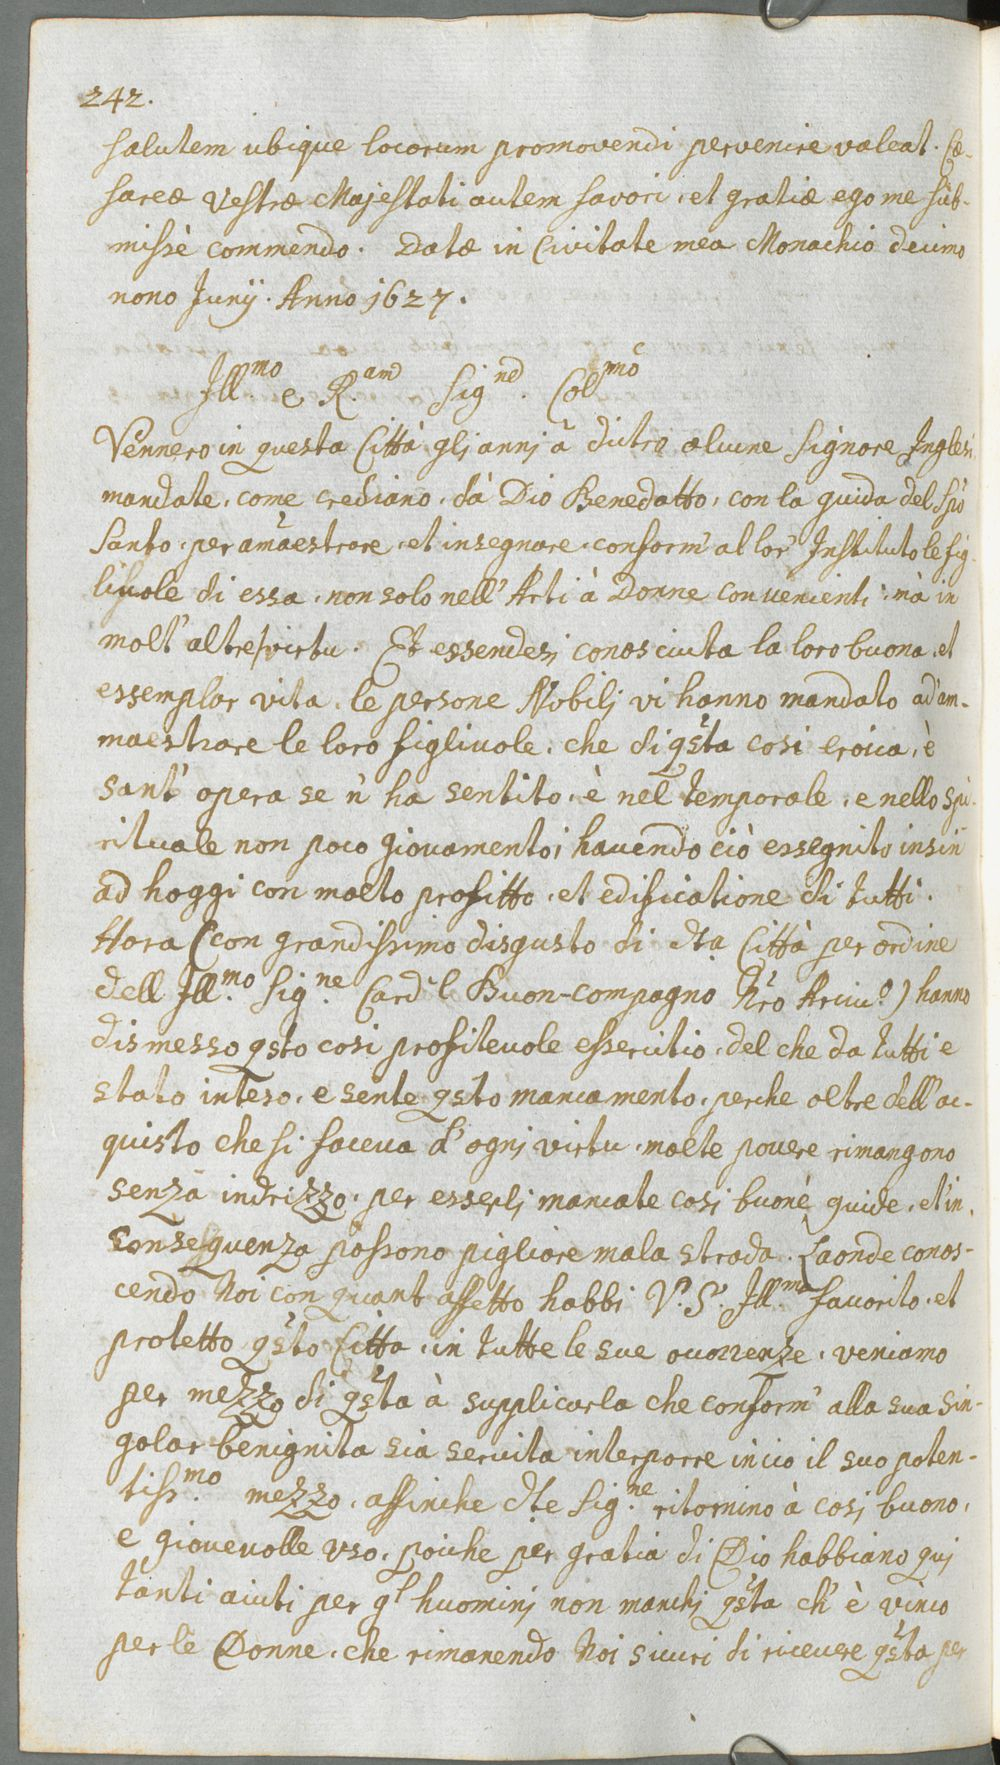 242.
salutem ubique locorum promovendi pervenire valeat. Cæ-
sareæ Vestræ Majestati autem favori, et gratiæ ego me sub-
missè commendo. Datæ in Civitate mea Monachio decimo
nono Junij. Anno 1627.
Ill.mo e R.and Sig.nd Col.mo
Vennero in questa Città gli annj à dietro alcune Signore Inglesi
mandate, come crediano, dà Dio Benedatto, con la guida del Spō
Santo, per am̄aestrare, et insegnare, conform' al lor' Instituto le fig-
liuole di essa, non solo nell' Arti à Donne convenienti, mà in
molt' altre virtu. Et essendesi conosciuta la loro buona, et
essemplar vita, le persone Nobilj vi hanno mandato ad'am-
maestrare le loro figliuole, che di qsta cosi eroica, è
sant' opera se n' ha sentito, è nel temporale, e nello spi-
rituale non poco giovamento, havendo ciò essegnito insin
ad hoggi con molto profitto, et edificatione di tutti.
Hora (con grandissimo disgusto di dta Città per ordine
dell Ill.mo Sig.ne Card.l Buon-compagno Nro Arciu.o) hanno
dismesso qsto cosi profitevole essercitio, del che da tutti e
stato inteso, e sente qsto mancamento, perche oltre dell' ac-
quisto che si faceva d' ognj virtu, molte povere rimangono
senza indrizzo, per esserlj mancate cosi buone guide, et in
Consequenza possono pigliare mala strada. Laonde conos-
cendo Noi con quant' affetto habbi V. S. Ill.ma favorito, et
protetto qsto Citta, in tutte le sue ocorrenze, veniamo
per mezzo di qsta à supplicarla che conform' alla sua sin-
golar benignita sia servita interporre in cio il suo poten-
tiss.mo mezzo, affinche dte Sig.ne ritornino à cosj buono,
e giovevolle uso, poiche per gratia di Dio habbiano quj
tanti aiuti per gl' huominj non manchj qsta ch' è vnico
per le Donne, che rimanendo Noi sicuri di ricevere qsta per